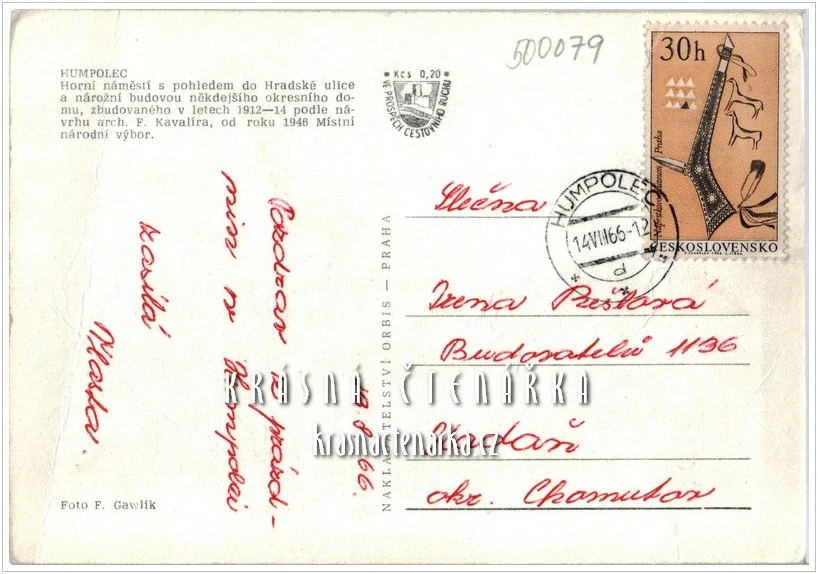 500079
HUMPOLEC
Horní náměstí s pohledem do Hradské ulice
a nárožní budovou někdejšího okresního do-
mu, zbudovaného v letech 1912—14 podle ná-
vrhu arch. F. Kavalíra, od roku 1946 Místní
národní výbor.
Kčs 0,20
VE PROSPĚCH CESTOVNÍHO RUCHU
30h
Náprstkovo muzeum Praha
ČESKOSLOVENSKO
HUMPOLEC
14.VIII.66-12
d
19.8.66.
Pozdrav z prázd-
nin v Humpolci
zasílá
Vlasta.
NAKLADATELSTVÍ ORBIS — PRAHA
Slečna
Irena
Budovatelů 1136
Kadaň
okr. Chomutov
KRÁSNÁ ČTENÁŘKA
krasnactenarka.cz
Foto F. Gawlik